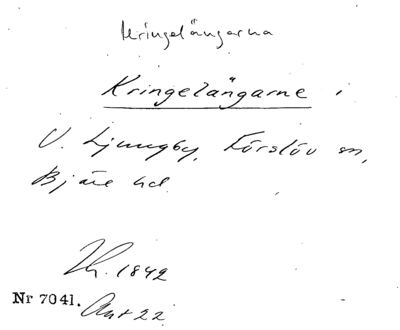 Kringelängarna
Kringelängarne i
V. Ljungby, Förslöv sn,
Bjäre hd
Lh. 1842
Nr 7041. Ant 22